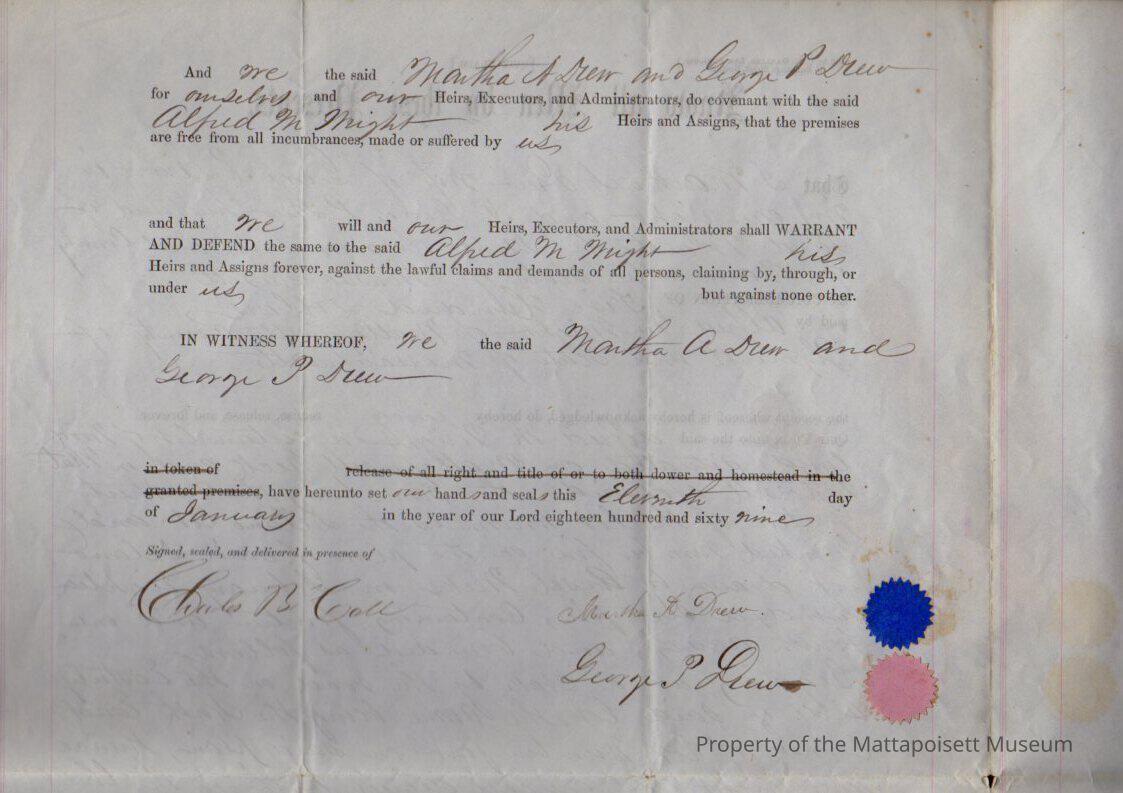 And we the said Martha A Drew and George P Drew
for ourselves and our Heirs, Executors, and Administrators, do covenant with the said
Alfred M Wright his Heirs and Assigns, that the premises
are free from all incumbrances, made or suffered by us
and that we will and our Heirs, Executors, and Administrators shall WARRANT
AND DEFEND the same to the said Alfred M Wright his
Heirs and Assigns forever, against the lawful claims and demands of all persons, claiming by, through, or
under us but against none other.
IN WITNESS WHEREOF, we the said Martha A Drew and
George P Drew
in token of release of all right and title of or to both dower and homestead in the
granted premises, have hereunto set our hands and seals this Eleventh day
of January in the year of our Lord eighteen hundred and sixty nine
Signed, sealed, and delivered in presence of
Charles B Martha A Drew.
George P Drew
Property of the Mattapoisett Museum